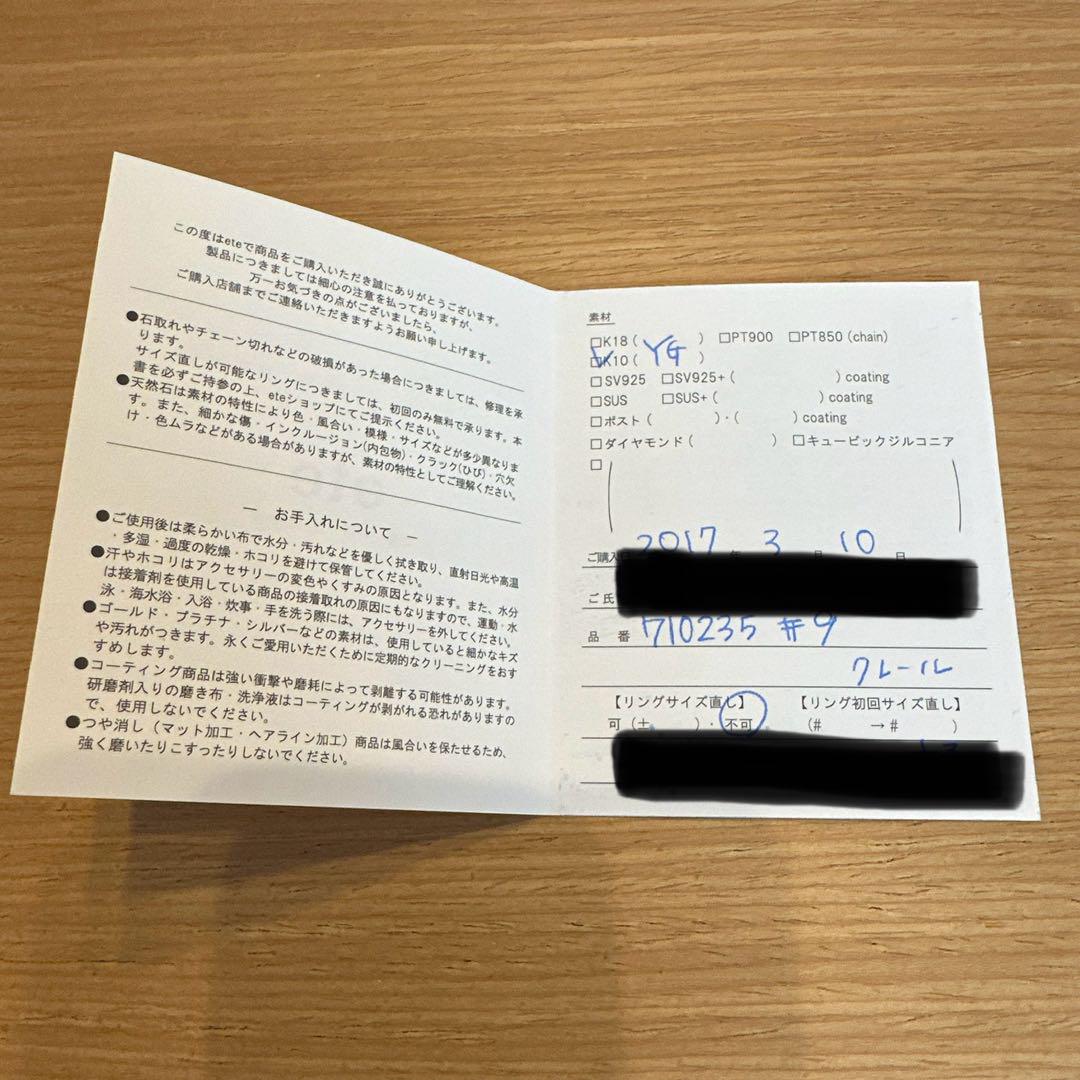 この度はeteで商品をご購入いただき誠にありがとうございます。
製品につきましては細心の注意を払っておりますが、
万一お気づきの点がございましたら、
ご購入店舗までご連絡いただきますようお願い申し上げます。
●石取れやチェーン切れなどの破損があった場合につきましては、修理を承
ります。
サイズ直しが可能なリングにつきましては、初回のみ無料で承ります。本
書を必ずご持参の上、eteショップにてご提示ください。
●天然石は素材の特性により色・風合い・模様・サイズなどが多少異なりま
す。また、細かな傷・インクルージョン(内包物)・クラック(ひび)・穴欠
け・色ムラなどがある場合がありますが、素材の特性としてご理解ください。
― お手入れについて ―
●ご使用後は柔らかい布で水分・汚れなどを優しく拭き取り、直射日光や高温
・多湿・過度の乾燥・ホコリを避けて保管してください。
●汗やホコリはアクセサリーの変色やくすみの原因となります。また、水分
は接着剤を使用している商品の接着取れの原因にもなりますので、運動・水
泳・海水浴・入浴・炊事・手を洗う際には、アクセサリーを外してください。
●ゴールド・プラチナ・シルバーなどの素材は、使用していると細かなキズ
や汚れがつきます。永くご愛用いただくために定期的なクリーニングをおす
すめします。
●コーティング商品は強い衝撃や磨耗によって剥離する可能性があります。
研磨剤入りの磨き布・洗浄液はコーティングが剥がれる恐れがありますの
で、使用しないでください。
●つや消し（マット加工・ヘアライン加工）商品は風合いを保たせるため、
強く磨いたりこすったりしないでください。
素材
□K18 ( ) □PT900 □PT850 (chain)
□K10 ( YG )
□SV925 □SV925+ ( ) coating
□SUS □SUS+ ( ) coating
□ポスト ( )・( ) coating
□ダイヤモンド ( ) □キュービックジルコニア
□
ご購入 2017 年 3 月 10 日
ご氏
品番 710235 #9
クレール
【リングサイズ直し】 【リング初回サイズ直し】
可 (± )・不可 (# → # )